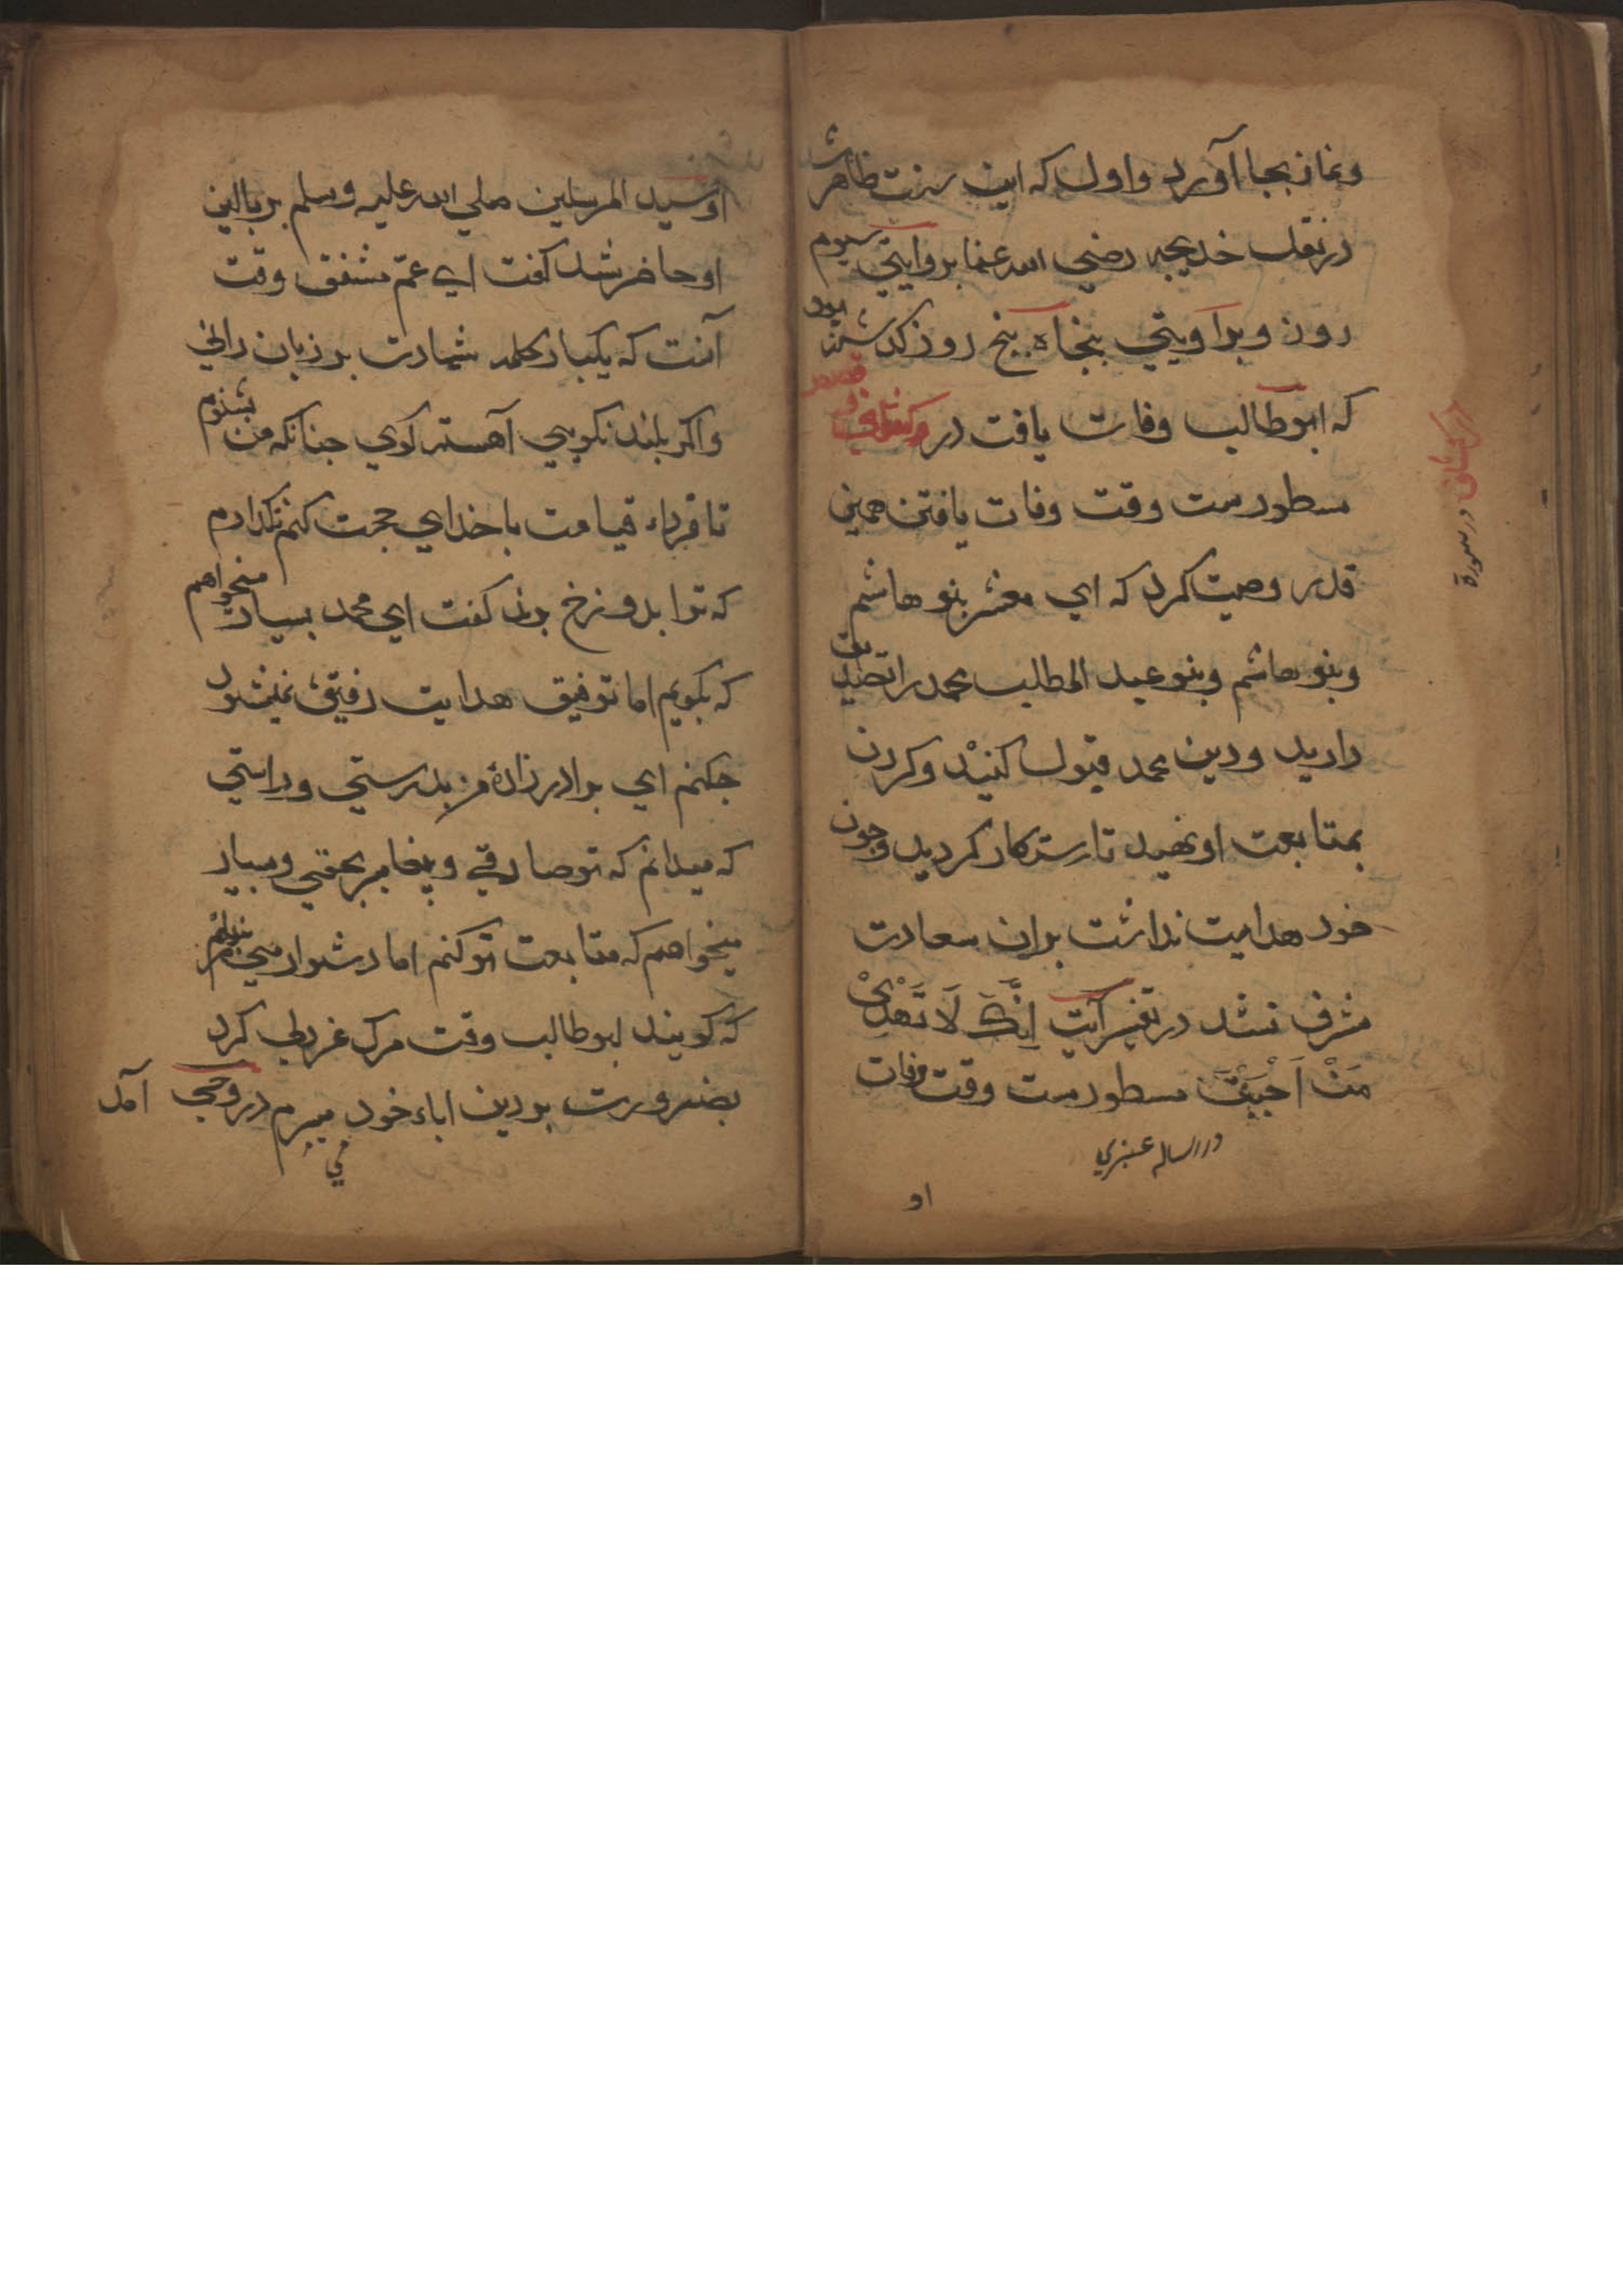 ونماز بجا آورد و اول که این سنت ظاهر شد
در نقل خدیجه رضي الله عنها بروایتي سیوم
روز وبراویتي پنجاه پنج روز کذشته بود
که ابوطالب وفات یافت در
مسطورست وقت وفات یافتن همین
قدر وصیت کرد که اي معشر بنو هاشم
وبنو هاشم وبنو عبد المطلب محمد را تصدیق
دارید ودین محمد قبول کنید وکردن
بمتابعت او نهید تا رستکار کردید وچون
خود هدایت نداشت بران سعادت
مشرف نشد در تفسیر آیت اِنَّكَ لَا تَهْدِيْ
مَنْ اَحْبَبْتَ مسطورست وقت وفات
در رساله عنبري
او
در کشاف در سورة
او سید المرسلین صلي الله علیه وسلم بر بالین
او حاضر شد کفت اي عمّ مشفق وقت
آنست که یکبار کلمه شهادت بر زبان راني
واکر بلند نکویي آهسته کوي چنانکه من بشنوم
تا فرداء قیامت با خداي حجت کنم نکذارم
که ترا بدوزخ برند کفت اي محمد بسیار میخواهم
که بکویم اما توفیق هدایت رفیق نمیشود
چکنم اي برادر زادهٔ من بدرستي وراستي
که میدانم که تو صادقي وپیغامبر بحقي وبسیار
میخواهم که متابعت تو کنم اما دشوار مي
که کویند ابوطالب وقت مرک غر بطي کرد
بضرورت بر دین اباء خود میبرم در وحي آمد